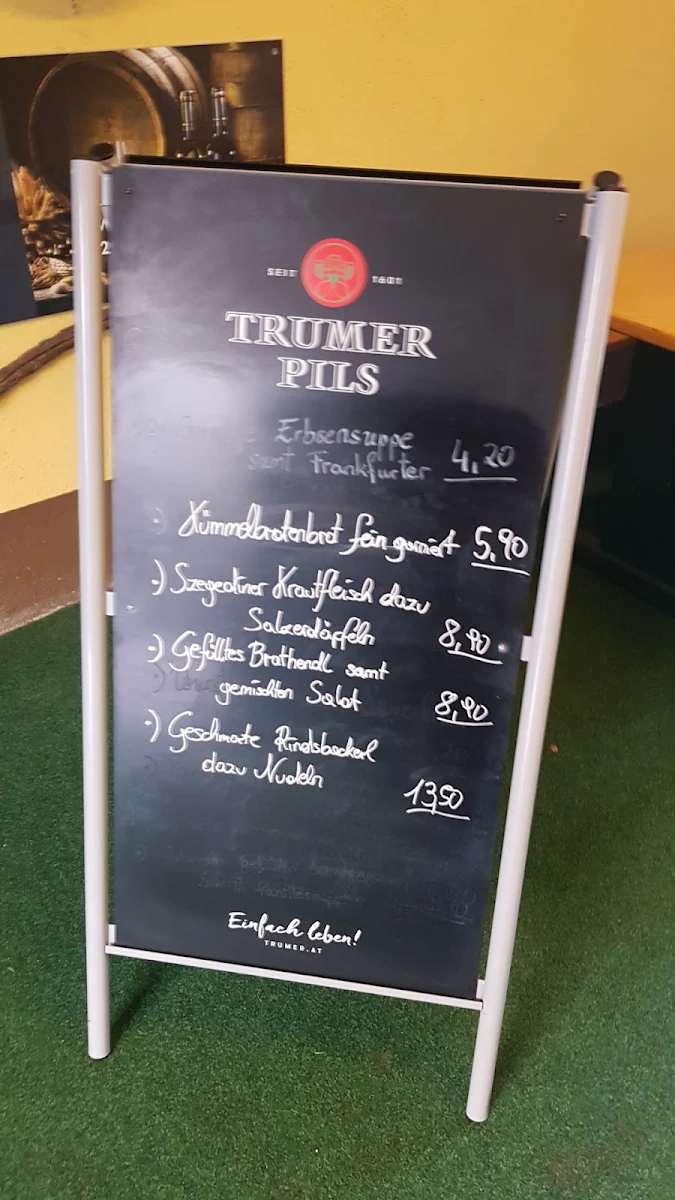 SEIT 1601
TRUMER
PILS
Erbsensuppe
samt Frankfurter 4,20
Kümmelbratenbrot fein garniert 5,90
·) Szegediner Krautfleisch dazu
Salzerdäpfeln 8,90
·) Gefülltes Brathendl samt
gemischten Salat 8,90
·) Geschmorte Rindsbackerl
dazu Nudeln 13,50
Einfach leben!
TRUMER.AT